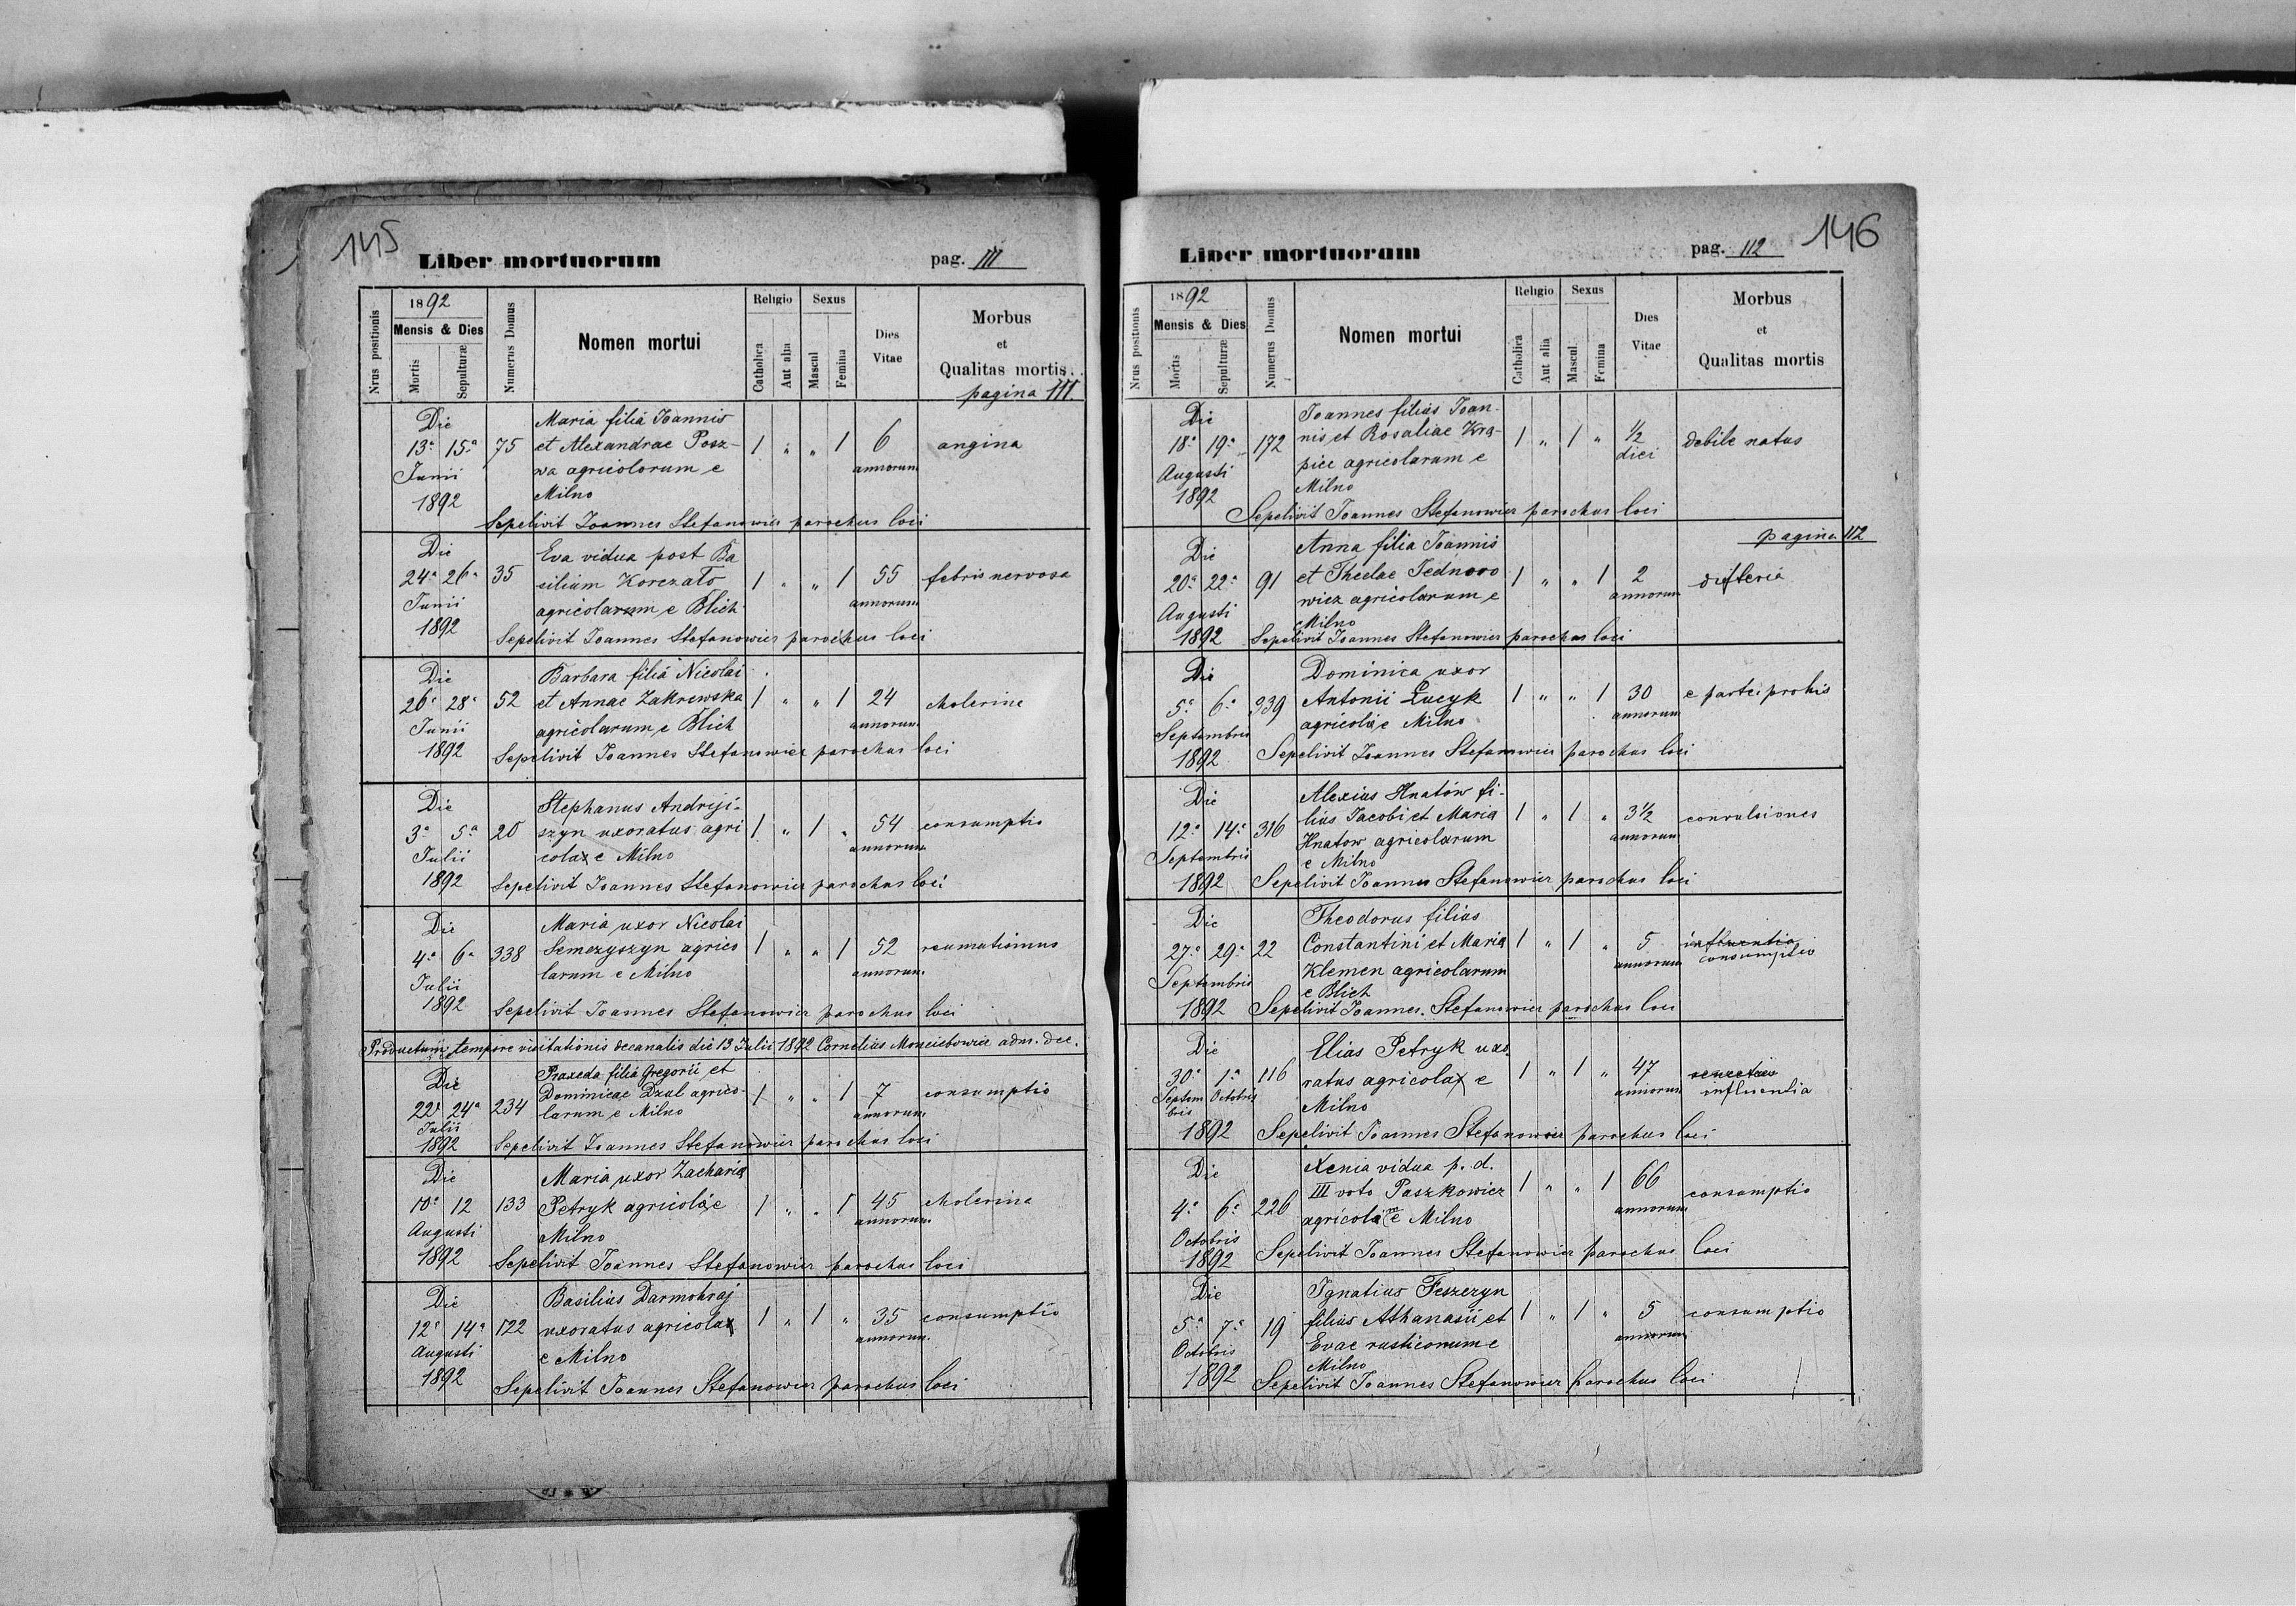 145
Liber mortuorum pag. 111
Nrus positionis
1892
Mensis & Dies
Mortis
Sepulturæ
Numerus Domus
Nomen mortui
Religio
Catholica
Aut alia
Sexus
Mascul
Femina
Dies
Vitae
Morbus
et
Qualitas mortis
pagina 111
Die Maria filia Ioannis
13ª 15ª 75 et Alexandrae Posz- 1 " " 1 6 angina
Junii wa agricolorum e annorum
1892 Milno
Sepelivit Ioannes Stefanowicz parochus loci
Die Eva vidua post Ba
24ª 26ª 35 silium Korczało 1 " " 1 55 febris nervosa
Junii agricolarum e Blich annorum
1892 Sepelivit Ioannes Stefanowicz parochus loci
Die Barbara filia Nicolai
26ª 28ª 52 et Annae Zakrewska 1 " " 1 24 cholerine
Junii agricolarum e Blich annorum
1892 Sepelivit Ioannes Stefanowicz parochus loci
Die Stephanus Andreji-
3ª 5ª 20 szyn uxoratus agri 1 " 1 " 54 consumptio
Julii colae e Milno annorum
1892 Sepelivit Ioannes Stefanowicz parochus loci
Die Maria uxor Nicolai
4ª 6ª 338 Semczyszyn agrico 1 " " 1 52 reumatismus
Julii larum e Milno annorum
1892 Sepelivit Ioannes Stefanowicz parochus loci
Productum tempore visitationis decanalis die 13 Julii 1892 Cornelius adm. dec.
Die Praxeda filia Gregorii et
22ª 24ª 234 Dominicae Dzul agrico- 1 " " 1 7 consumptio
Julii larum e Milno annorum
1892 Sepelivit Ioannes Stefanowicz parochus loci
Die Maria uxor Zacharia
10ª 12 133 Petryk agricolae 1 " " 1 45 cholerina
Augusti Milno annorum
1892 Sepelivit Ioannes Stefanowicz parochus loci
Die Basilius Darmohraj
12ª 14ª 122 uxoratus agricola 1 " 1 " 35 consumptio
Augusti e Milno annorum
1892 Sepelivit Ioannes Stefanowicz parochus loci
146
Liber mortuorum pag. 112
Nrus positionis
1892
Mensis & Dies
Mortis
Sepulturæ
Numerus Domus
Nomen mortui
Religio
Catholica
Aut alia
Sexus
Mascul.
Femina
Dies
Vitae
Morbus
et
Qualitas mortis
Die Ioannes filius Ioan-
18ª 19ª 172 nis et Rosaliae Kra- 1 " 1 " ½ debile natus
Augusti picc agricolarum e diei
1892 Milno
Sepelivit Ioannes Stefanowicz parochus loci
pagina 112
Die Anna filia Ioannis
20ª 22ª 91 et Theclae Jednoro 1 " " 1 2 difteria
Augusti wicz agricolarum e annorum
Milno
1892 Sepelivit Ioannes Stefanowicz parochus loci
Die Dominica uxor
5ª 6ª 339 Antonii Łucyk 1 " " 1 30 e partei prohis
Septembris agricola e Milno annorum
1892 Sepelivit Ioannes Stefanowicz parochus loci
Die Alexius Hnatów fi-
12ª 14ª 316 lius Jacobi et Maria 1 " 1 " 3½ convulsiones
Septembris Hnatow agricolarum annorum
e Milno
1892 Sepelivit Ioannes Stefanowicz parochus loci
Die Theodorus filius
27ª 29ª 22 Constantini et Maria 1 " 1 " 5 influentia
Septembris Klemen agricolarum annorum consumptio
e Blich
1892 Sepelivit Ioannes Stefanowicz parochus loci
Die Elias Petryk uxo
30ª 1ª 116 ratus agricola e 1 " 1 " 47
Septembris Octobris Milno annorum influentia
1892 Sepelivit Ioannes Stefanowicz parochus loci
Die Xenia vidua p. d.
4ª 6ª 226 III voto Paszkowicz 1 " " 1 66 consumptio
Octobris agricolam e Milno annorum
1892 Sepelivit Ioannes Stefanowicz parochus loci
Die Ignatius Feszczyn
5ª 7ª 19 filius Athanasii et 1 " 1 " 5 consumptio
Octobris Evae rusticorum e annorum
Milno
1892 Sepelivit Ioannes Stefanowicz parochus loci